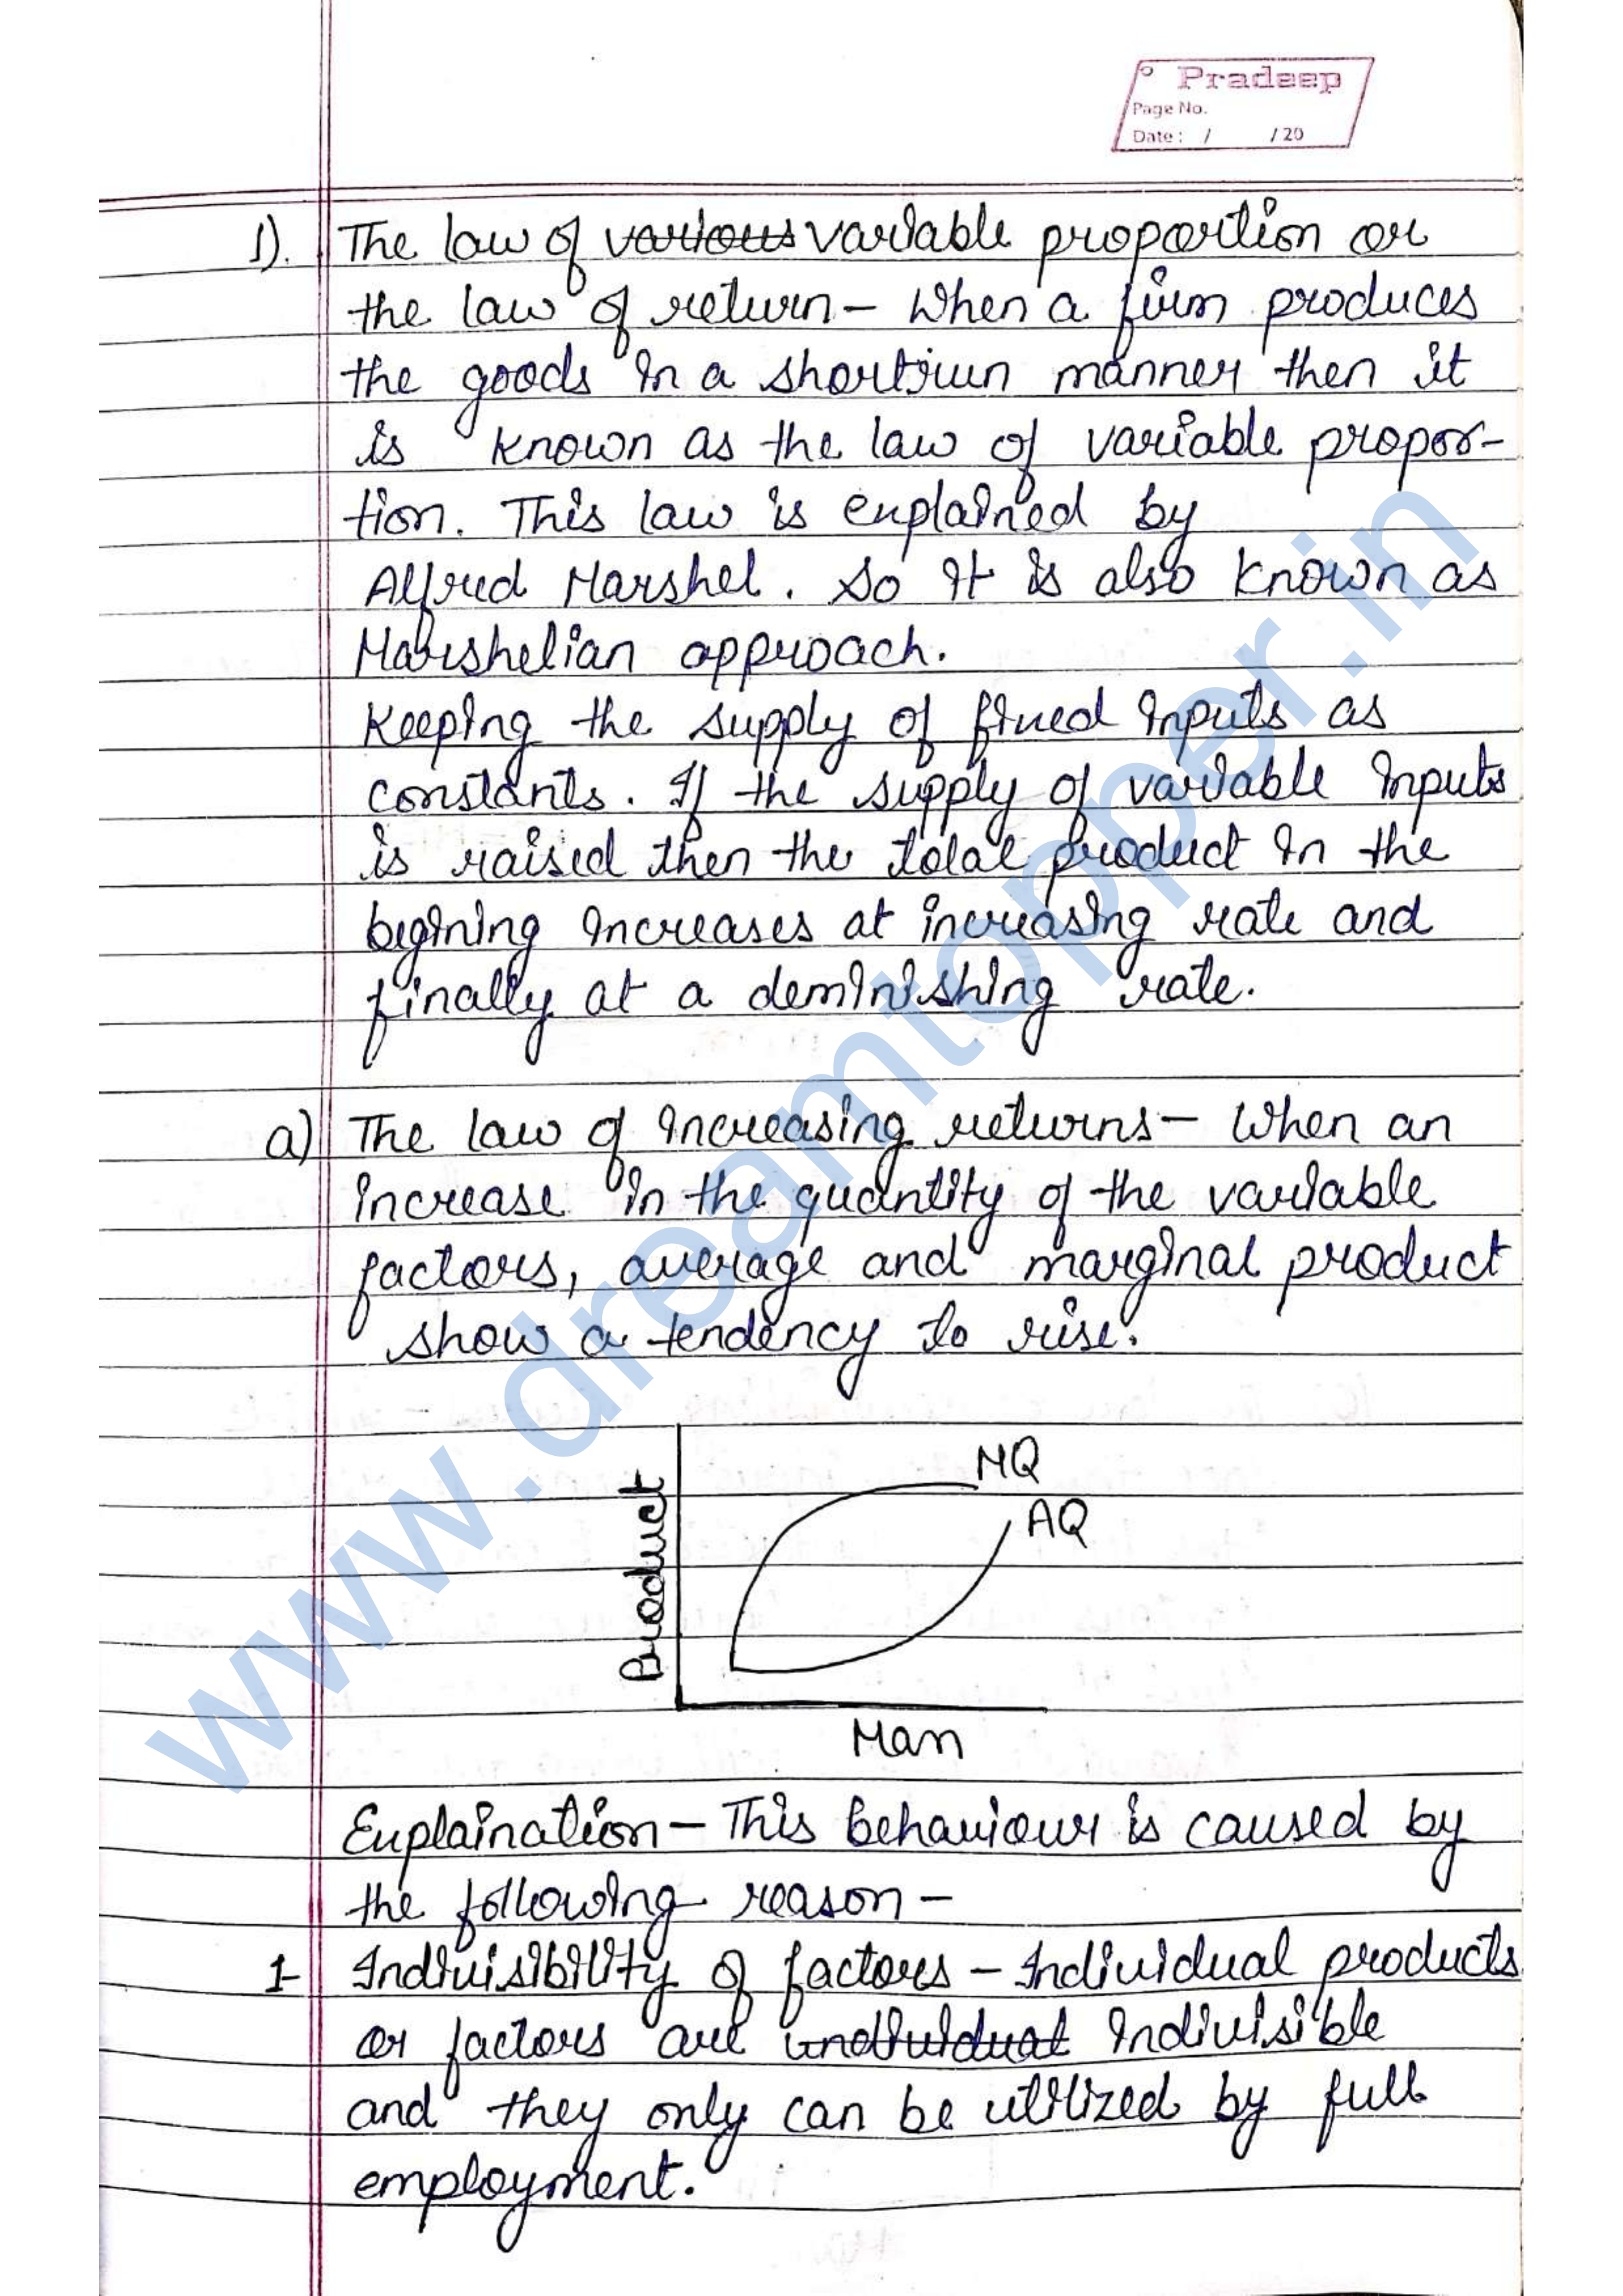 Pradeep
Page No.
Date : / / 20
1). The law of various variable proportion or
the law of return – When a firm produces
the goods in a shortrun manner then it
is known as the law of variable propor-
tion. This law is explained by
Alfred Marshel. So it is also known as
Marshelian approach.
Keeping the supply of fixed inputs as
constants. If the supply of variable inputs
is raised then the total product in the
begining increases at increasing rate and
finally at a deminishing rate.
a) The law of increasing returns – When an
increase in the quantity of the variable
factors, average and marginal product
show a tendency to rise.
MQ
AQ
Product
Man
Explaination – This behaviour is caused by
the following reason –
1- Indivisibility of factors – Individual products
or factors are individual indivisible
and they only can be utilized by full
employment.
www.dreamtopper.in